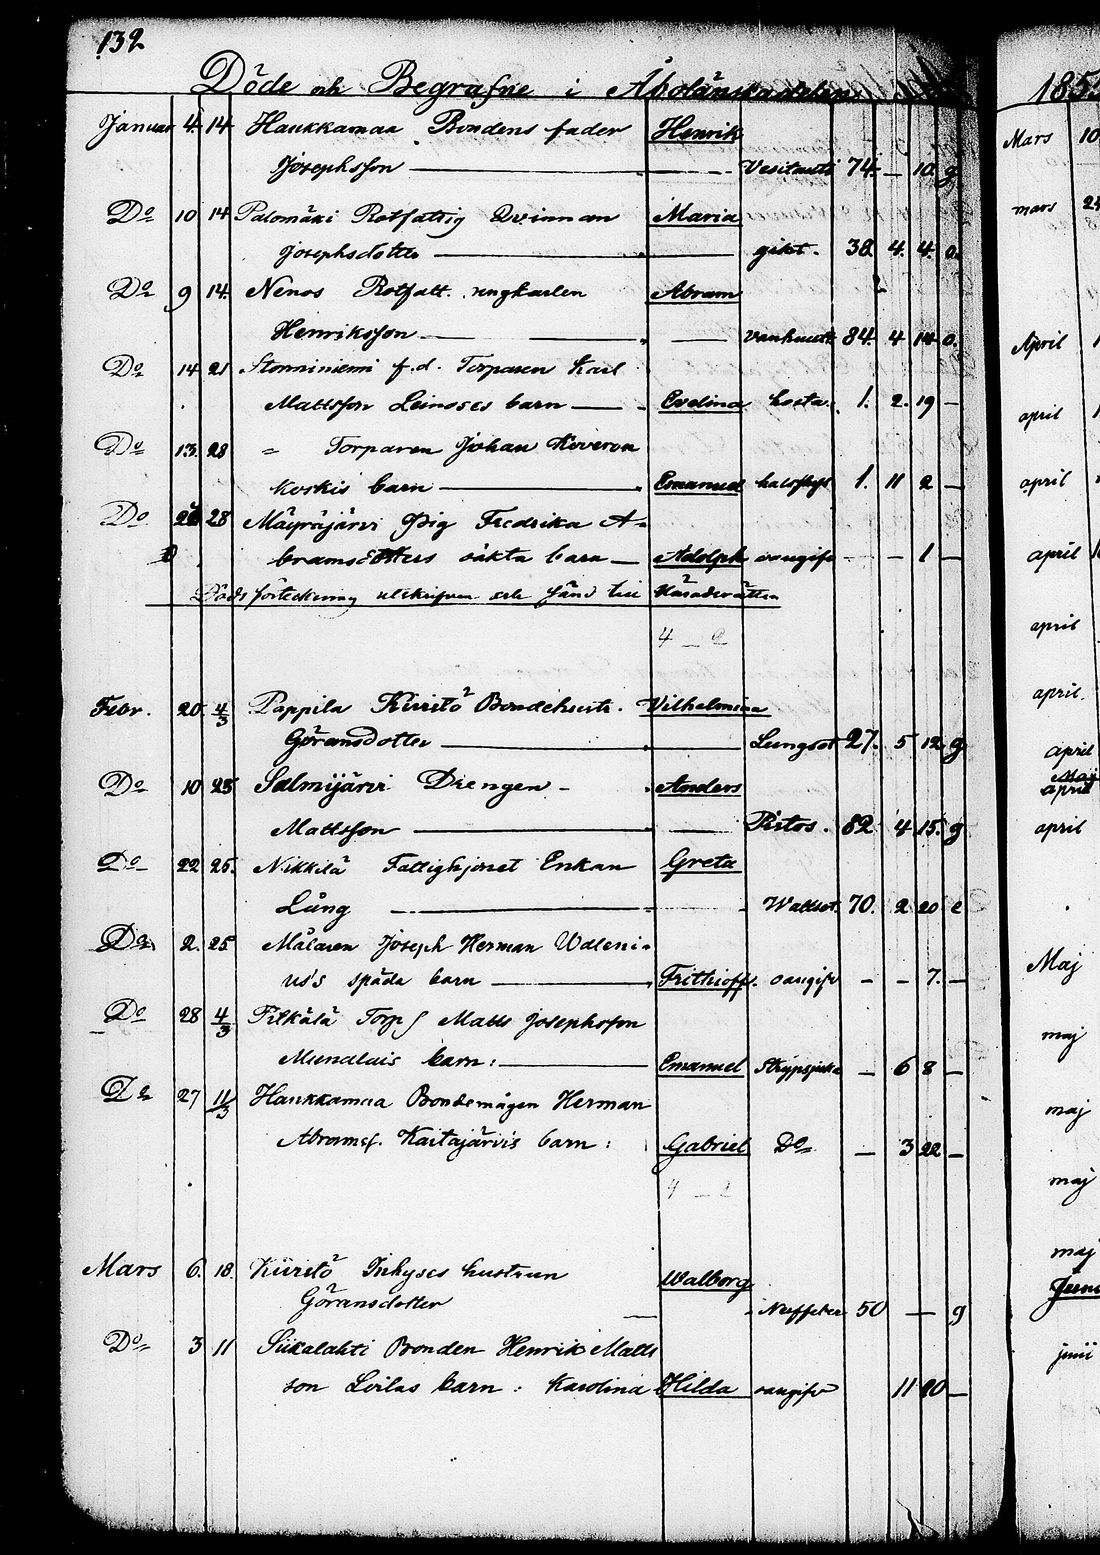 132
Döde och Begrafne i Åbolänskadelen
Januar 4. 14. Haukkamaa Bondens fader Henrik
Josephsson Vesitauti 74. — 10. g
Do 10 14 Palomäki Rotfattig Qvinnan Maria
Josephsdotter gikt. 38. 4. 4. o.
Do 9 14. Nenos Rotfatt. ungkarlen Abram
Henriksson Vanhuutt. 84. 4 14 o.
Do 14 21 f.d. Torparen Karl
Mattsson Leinoses barn — Evelina hosta. 1. 2. 19 —
Do 13. 28 " Torparen Johan Koveron
koskis barn Emanuel halsflyt 1. 11 2 —
Do 28 Mäyräjärvi Pig Fredrika A-
bramsdotters oäkta barn — Adolph oangifv — — 1 —
Döds förteckning utskrifven och sänd till Häradsrätten
4 — 2
Febr. 20. 4/3 Pappila Kiiritö Bondehustr. Vilhelmina
Göransdotter Lungsot 27. 5 12 g
Do 10 25 Salmijärvi Drengen - Anders
Mattsson Pistos. 82 4 15. g
Do 22 25. Nikkilä Fattighjonet Enkan Greta
Lång Wattsot. 70. 2 20 e
Do 2. 25 Målaren Joseph Herman Waleni-
us's späda barn Frithioff. oangifv — — 7. —
Do 28 4/3 Pilkälä Torp Matts Josephsson
barn: Emanuel Strypsjuka — 6 8 —
Do 27 11/3 Haukkamaa Bondemågen Herman
Abramsf. Kaitajärvis barn: Gabriel Do — 3 22 —
4 — 2
Mars 6. 18. Kiiritö Inhyses hustrun Walborg
Göransdotter Nerffeber 50 — g
Do 3 11 Siikalahti Bonden Henrik Matts
son Leilas barn: Karolina Hilda oangifv 11 20 —
185
Mars 10
mars 2
April 1
april 1
april
april 1
april
april.
april
Maj
april
april
Maj
maj
maj
maj
maj
Juni
juni